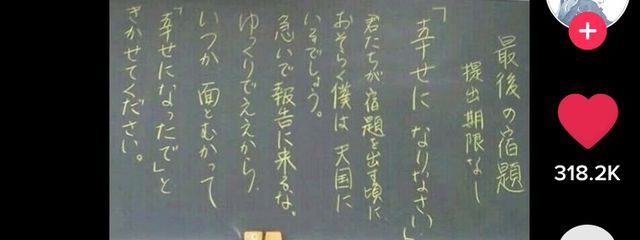 最後の宿題
提出期限なし
「幸せに なりなさい」
君たちが宿題を出す頃に、
おそらく僕は 天国に
いるでしょう。
急いで報告に来るな。
ゆっくりでええから、
いつか 面とむかって
「幸せになったで」と
きかせてください。
318.2K